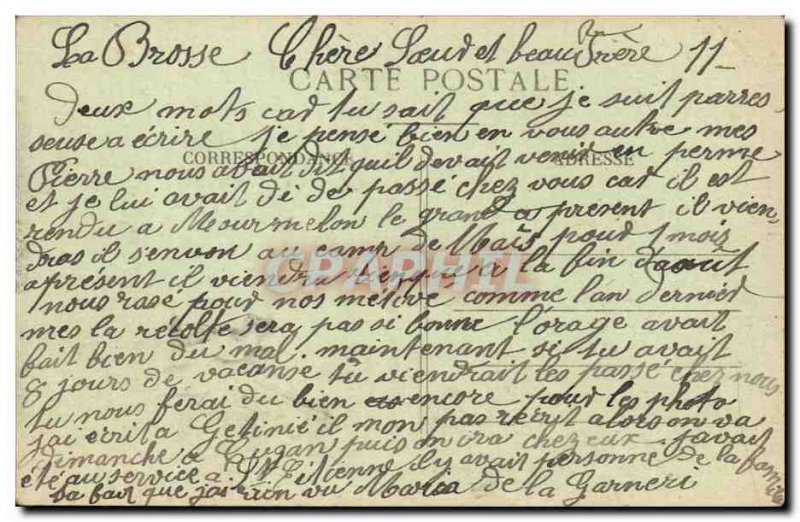 La Brosse Chère Soeur et beau Frère 11
CARTE POSTALE
deux mots car tu sait que je suit parres
seuse a écrire je pensé bien en vous autre mes
CORRESPONDANCE ADRESSE
Pierre nous avait dit quil devait venir en perme
et je lui avait di de passé chez vous car il est
rendu a Mourmelon le grand a présent il vien
dras il senvon au camp de Maïs pour 1 mois
aprésent il viendra que a la fin daout
CPAPHIL
nous rasé pour nos métive comme lan dernier
mes la recolte sera pas si bonne l'orage avait
fait bien du mal. maintenant si tu avait
8 jours de vacanse tu viendrait les passé chez nous
tu nous ferai du bien encore pour les photo
jai écrit a Getinie il mon pas recrit alors on va
dimanche a Cugan puis on ira chez eux javait
été au service a St Etienne il y avait personne de la famille
sa fait que jai rien vu Maria de la Garneri